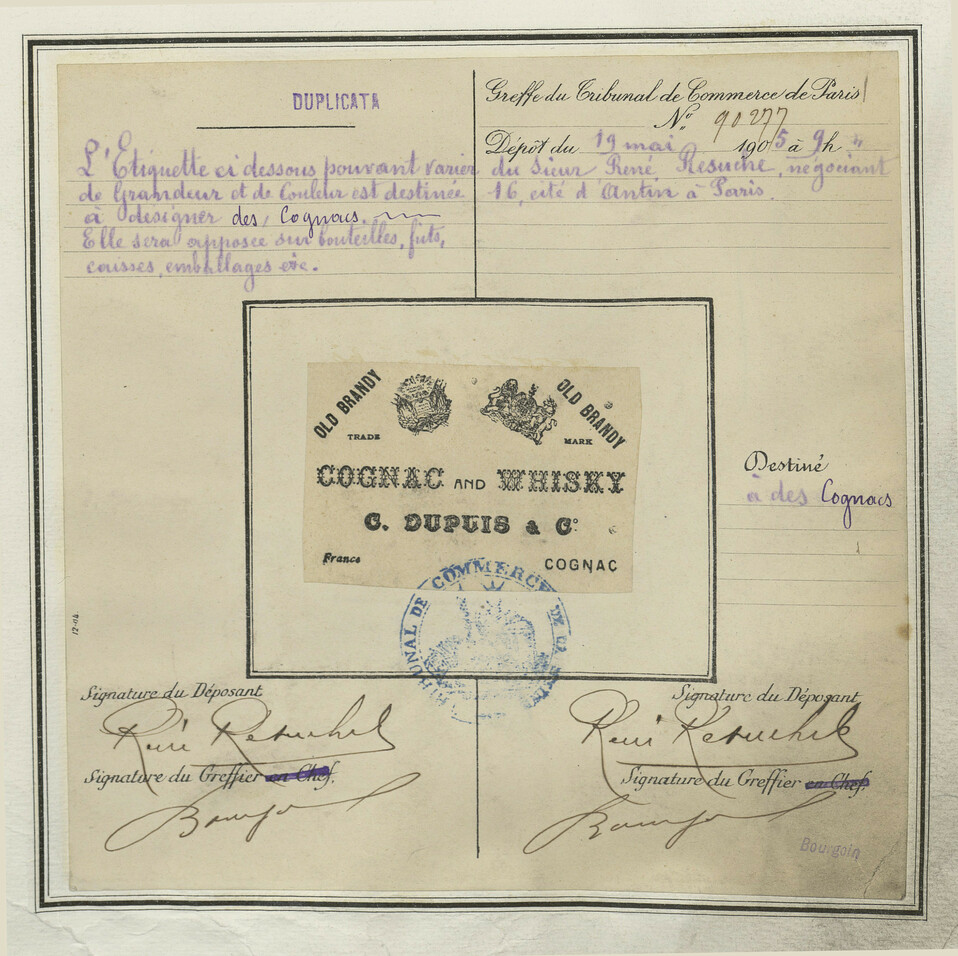 DUPLICATA
L'Etiquette ci dessous pouvant varier
de Grandeur et de Couleur est destinée
à designer des Cognacs.
Elle sera apposée sur bouteilles, futs,
caisses, emballages etc.
Greffe du Tribunal de Commerce de Paris
No 90277
Dépôt du 19 mai 1905 à 9h
du Sieur René, Resuche, négociant
16, cité d'Antin à Paris.
OLD BRANDY
OLD BRANDY
TRADE MARK
COGNAC AND WHISKY
C. DUPUIS & Co
France COGNAC
TRIBUNAL DE COMMERCE DE LA
Destiné
à des Cognacs
12-04
Signature du Déposant
René
Signature du Greffier en Chef.
Signature du Déposant
René
Signature du Greffier en Chef.
Bourgoin